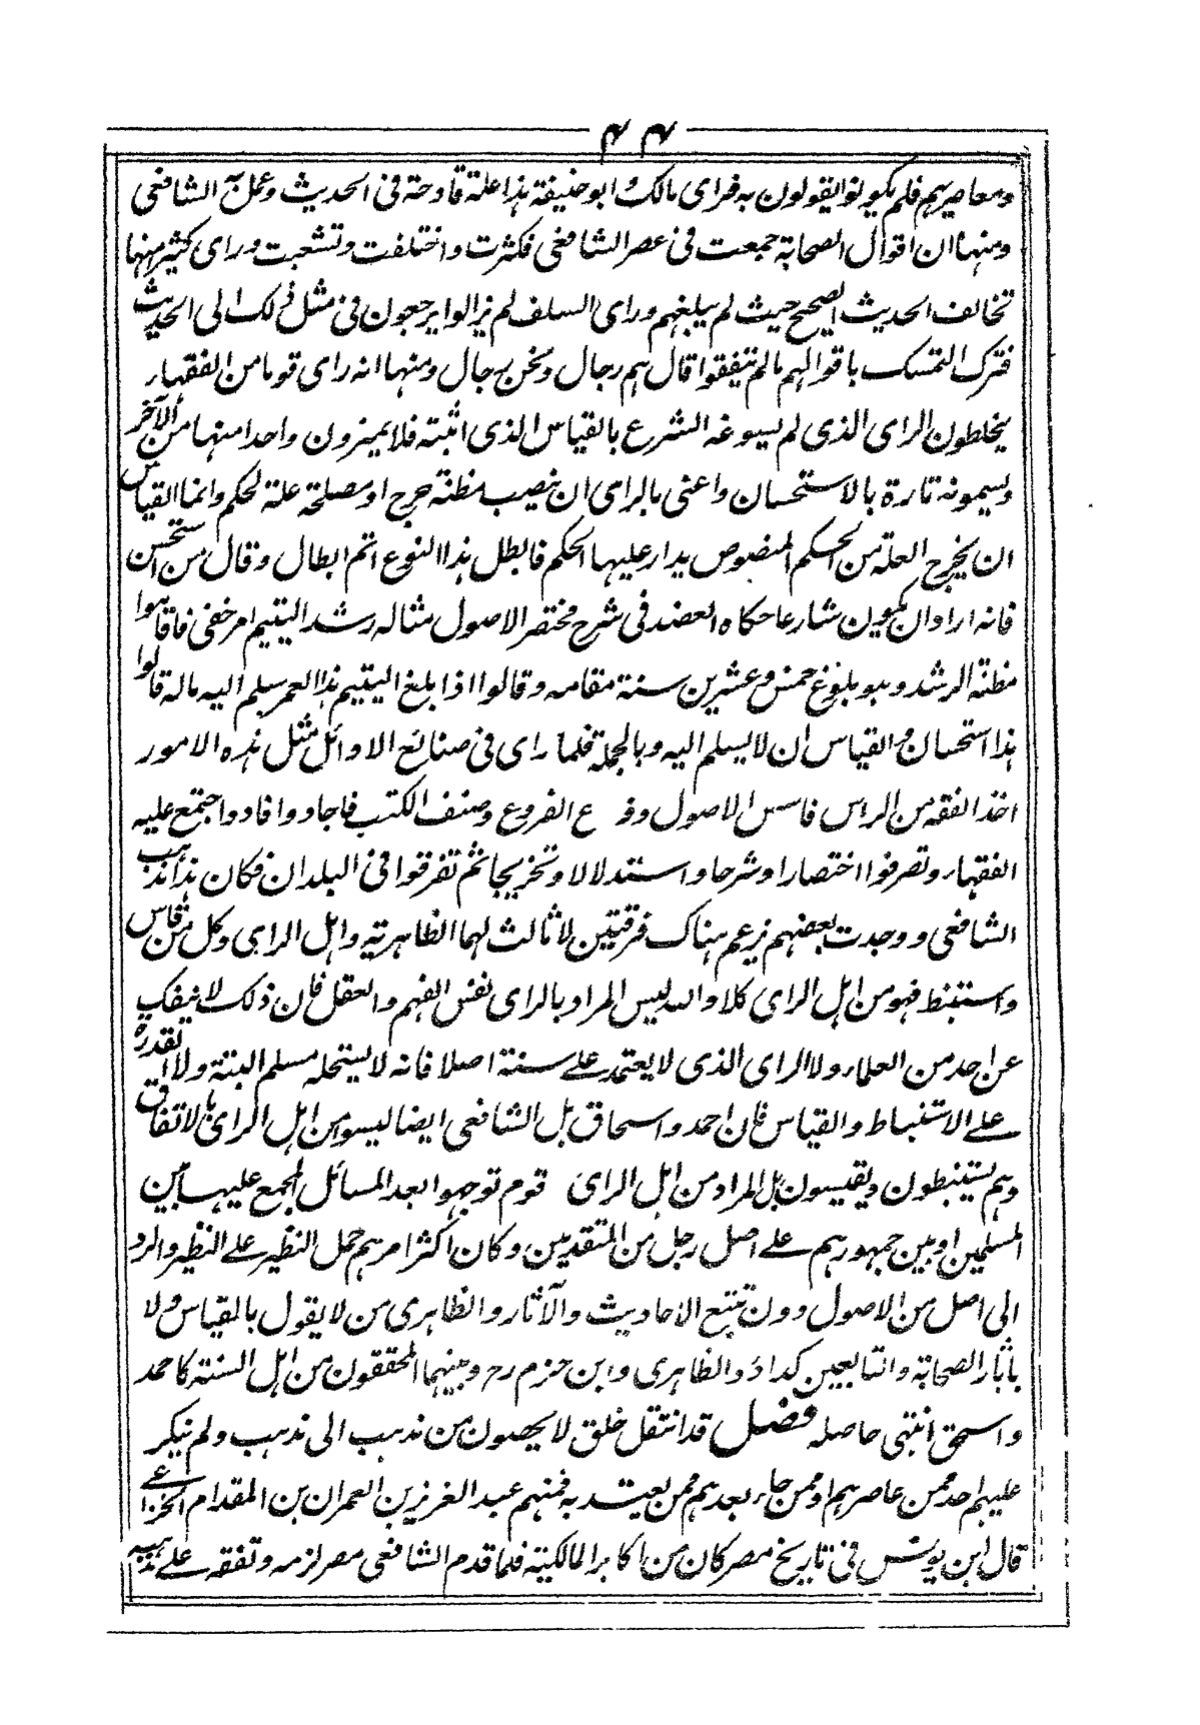 ۴۴
ومعاصریهم فلم یکونوا یقولون به فرای مالک وابو حنیفة هذا علة قادحة فی الحدیث وعمل به الشافعی
ومنها ان اقوال الصحابة جمعت فی عصر الشافعی فکثرت واختلفت وتشعبت ورای کثیرا منها
تخالف الحدیث الصحیح حیث لم یبلغهم ورای السلف لم یزالوا یرجعون فی مثل ذلک الی الحدیث
فترک التمسک باقوالهم مالم یتفقوا قال هم رجال ونحن رجال ومنها انه رای قوما من الفقهاء
یخلطون الرای الذی لم یسوغه الشرع بالقیاس الذی اثبته فلا یمیزون واحدا منها من الآخر
ویسمونه تارة بالاستحسان واعنی بالرای ان ینصب مظنة حرج او مصلحة علة لحکم وانما القیاس
ان یخرج العلة من الحکم المنصوص یدار علیها الحکم فابطل هذا النوع اتم ابطال وقال من استحسن
فانه اراد ان یکون شارعا حکاه العضد فی شرح مختصر الاصول مثاله رشد الیتیم امر خفی فاقاموا
مظنة الرشد وهو بلوغ خمس وعشرین سنة مقامه وقالوا اذا بلغ الیتیم هذا العمر سلم الیه ماله قالوا
هذا استحسان والقیاس ان لا یسلم الیه وبالجملة فلما رای فی صنائع الاوائل مثل هذه الامور
اخذ الفقه من الراس فاسس الاصول وفرع الفروع وصنف الکتب فاجاد وافاد واجتمع علیه
الفقهاء وتصرفوا اختصارا وشرحا واستدلالا وتخریجا ثم تفرقوا فی البلدان فکان هذا مذهب
الشافعی ووجدت بعضهم یزعم هناک فرقتین لا ثالث لهما الظاهریة واهل الرای وکل من قاس
واستنبط فهو من اهل الرای کلا والله لیس المراد بالرای نفس الفهم والعقل فان ذلک لا ینفک
عن احد من العلماء ولا الرای الذی لا یعتمد علے سنة اصلا فانه لا ینتحله مسلم البتة ولا القدرة
علے الاستنباط والقیاس فان احمد واسحاق بل الشافعی ایضا لیسوا من اهل الرای بالاتفاق
وهم یستنبطون ویقیسون بل المراد من اهل الرای قوم توجهوا بعد المسائل المجمع علیها بین
المسلمین او بین جمهورهم علے اصل رجل من المتقدمین وکان اکثر امرهم حمل النظیر علے النظیر والرد
الی اصل من الاصول دون تتبع الاحادیث والآثار والظاهری من لا یقول بالقیاس ولا
بآثار الصحابة والتابعین کداؤد الظاهری وابن حزم رح وبینهما المحققون من اهل السنة کاحمد
واسحق انتهی حاصله فصل قد انتقل خلق لا یحصون من مذهب الی مذهب ولم ینکر
علیهم احد ممن عاصرهم او ممن جاء بعدهم ممن یعتد به فمنهم عبد العزیز بن العمران بن المقدام الخزاعے
قال ابن یونس فی تاریخ مصر کان من اکابر المالکیة فلما قدم الشافعی مصر لزمه وتفقه علے مذهبه